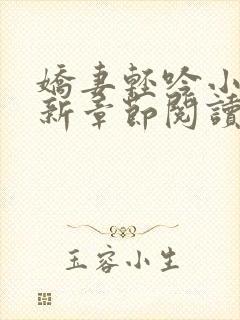 嬌妻輕吟小
新章節閱讀
玉容小生